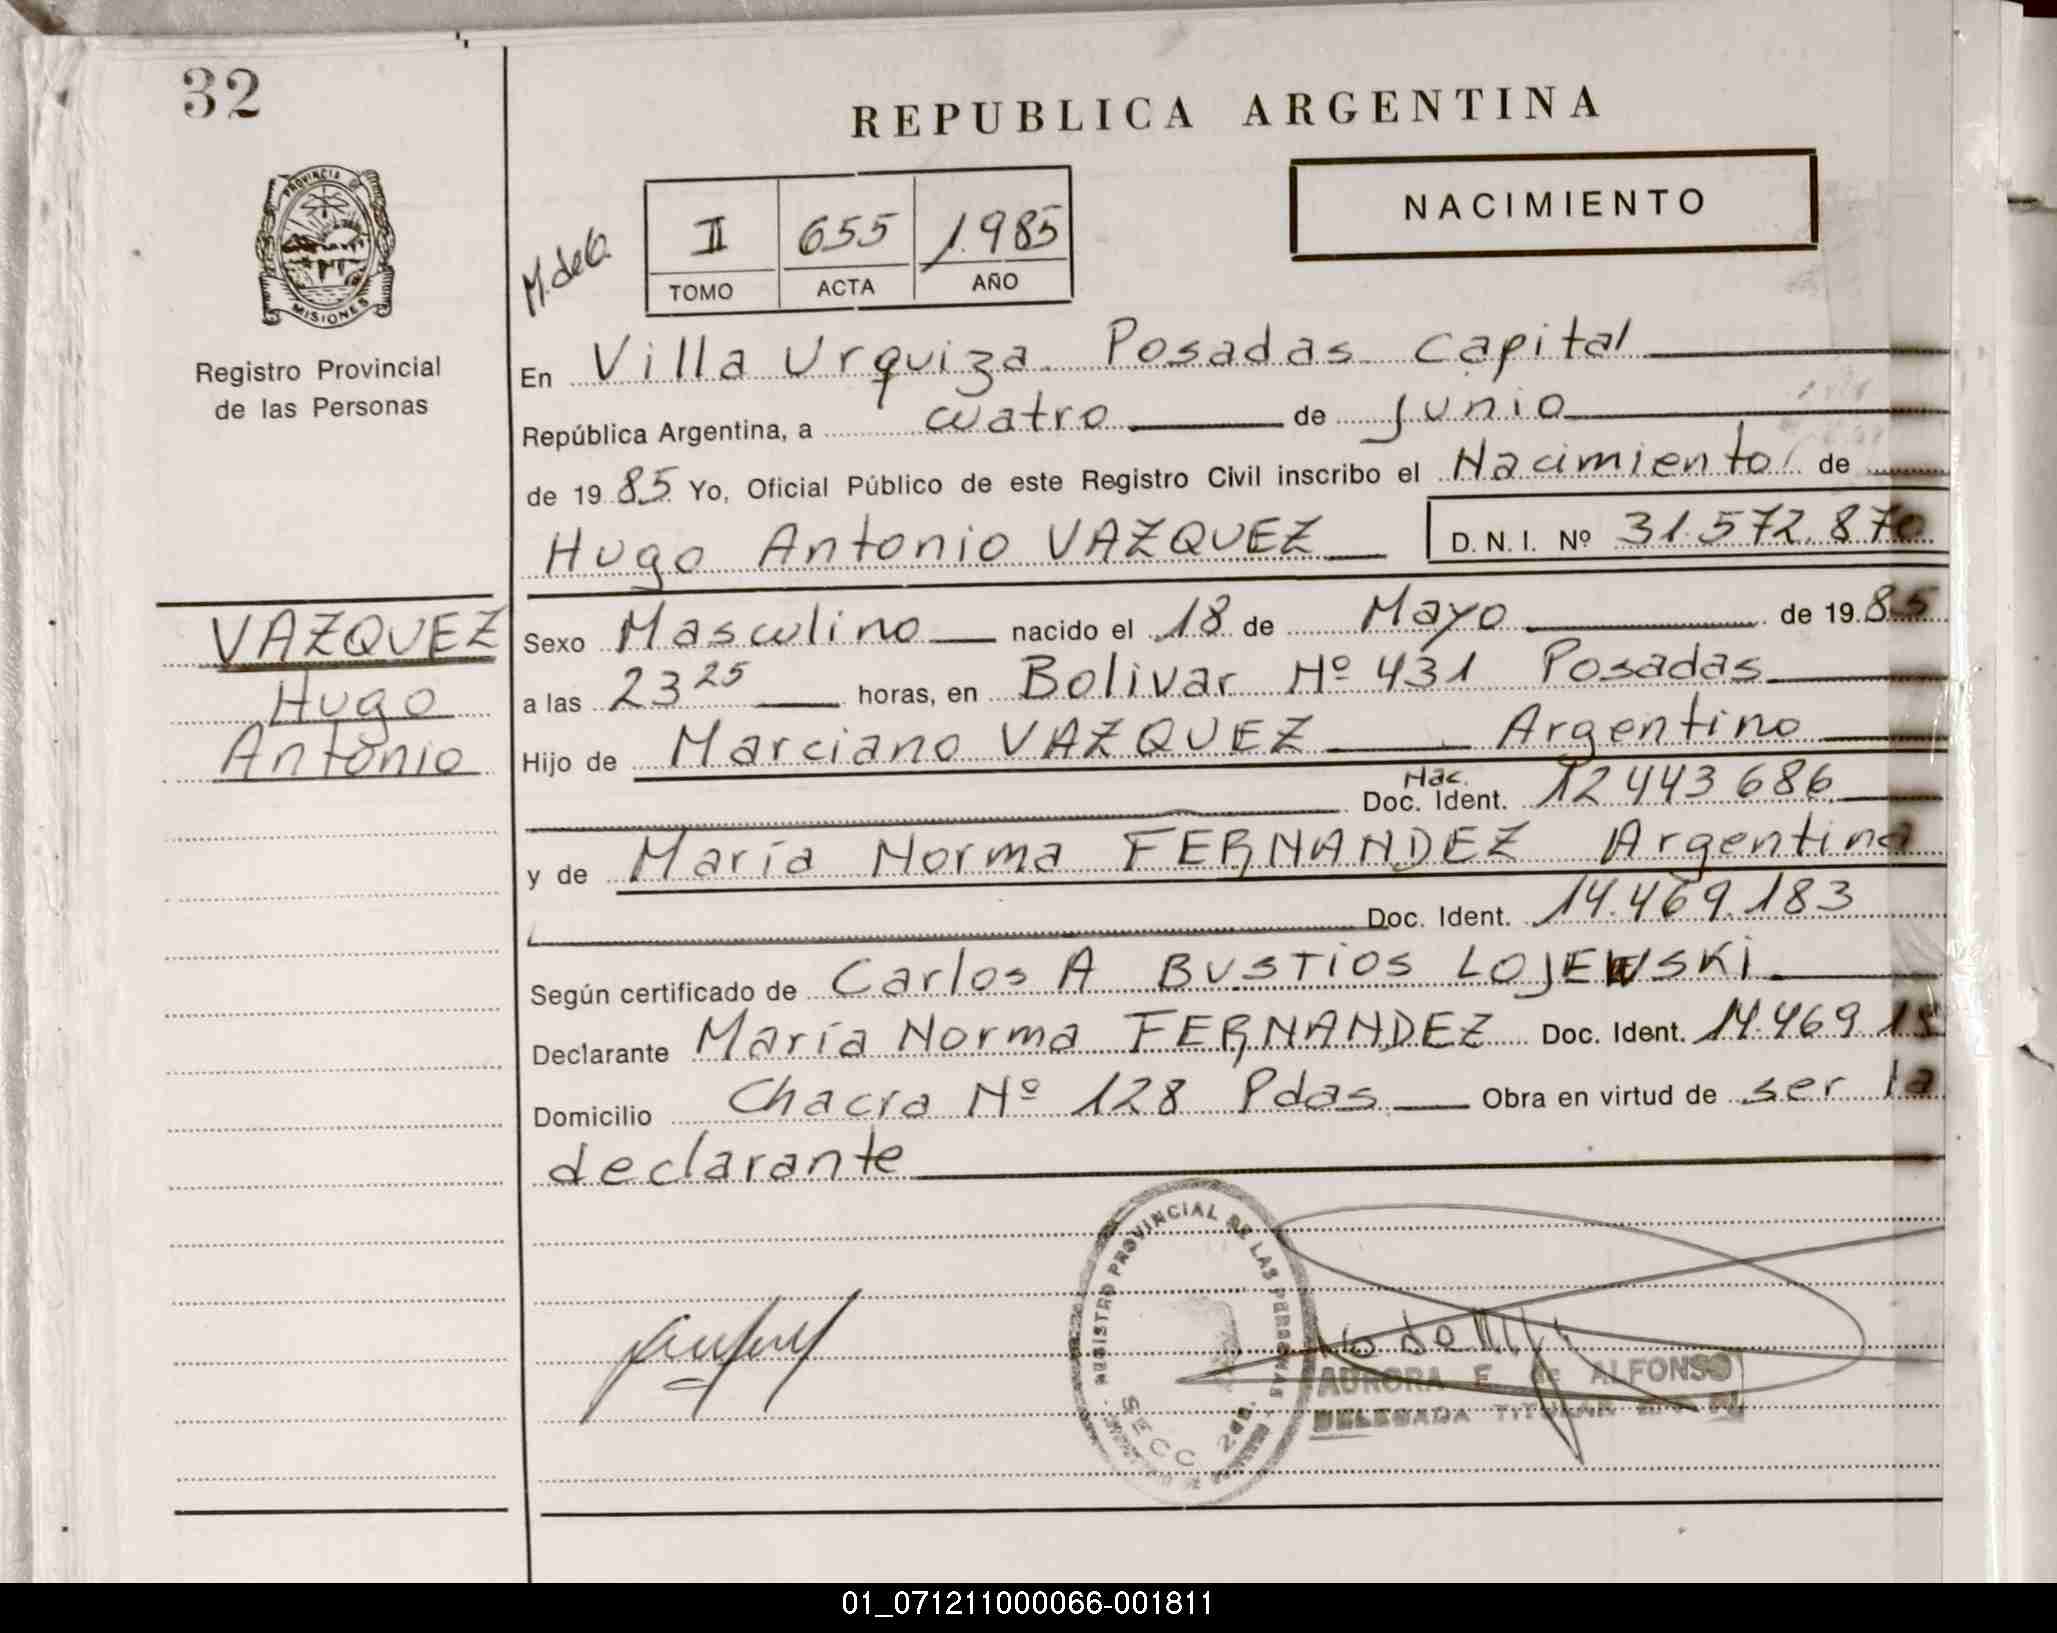 32
REPUBLICA ARGENTINA
PROVINCIA DE
MISIONES
Registro Provincial
de las Personas
M. de G.
II 655 1985
TOMO ACTA AÑO
NACIMIENTO
En Villa Urquiza Posadas Capital
República Argentina, a cuatro de Junio
de 1985 Yo, Oficial Público de este Registro Civil inscribo el Nacimiento de
Hugo Antonio VAZQUEZ D.N.I. Nº 31.572.870
VAZQUEZ
Hugo
Antonio
Sexo Masculino nacido el 18 de Mayo de 1985
a las 23 25 horas, en Bolivar Nº 431 Posadas
Hijo de Marciano VAZQUEZ Argentino
Nac.
Doc. Ident. 12443686
y de María Norma FERNANDEZ Argentina
Doc. Ident. 14.469.183
Según certificado de Carlos A BUSTIOS LOJEWSKI
Declarante María Norma FERNANDEZ Doc. Ident. 14.469
Domicilio Chacra Nº 128 Pdas Obra en virtud de ser la
declarante
REGISTRO PROVINCIAL DE LAS PERSONAS
SECC 2da.
AURORA E. de ALFONSO
DELEGADA TITULAR
01_071211000066-001811